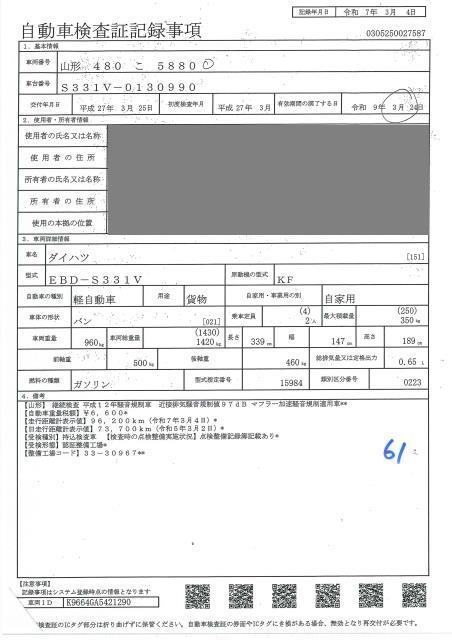 記録年月日 令和 7年 3月 4日
自動車検査証記録事項
0305250027587
1. 基本情報
車両番号 山形 480 こ 5880
車台番号 S331V-0130990
交付年月日 平成27年 3月 25日 初度検査年月 平成27年 3月 有効期間の満了する日 令和 9年 3月 24日
2. 使用者・所有者情報
使用者の氏名又は名称
使用者の住所
所有者の氏名又は名称
所有者の住所
使用の本拠の位置
3. 車両詳細情報
車名 ダイハツ [151]
型式 EBD-S331V 原動機の型式 KF
自動車の種別 軽自動車 用途 貨物 自家用・事業用の別 自家用
車体の形状 バン [021] 乗車定員 (4) 2人 最大積載量 (250) 350kg
車両重量 960kg 車両総重量 (1430) 1420kg 長さ 339cm 幅 147cm 高さ 189cm
前軸重 500kg 後軸重 460kg 総排気量又は定格出力 0.65L
燃料の種類 ガソリン 型式指定番号 15984 類別区分番号 0223
4. 備考
【山形】 継続検査 平成12年騒音規制車 近接排気騒音規制値97dB マフラー加速騒音規制適用車**
【自動車重量税額】¥6,600*
【走行距離計表示値】96,200km(令和7年3月4日)*
【旧走行距離計表示値】73,700km(令和5年3月2日)*
【受検種別】持込検査車 【検査時の点検整備実施状況】点検整備記録簿記載あり*
【受検形態】認証整備工場*
【整備工場コード】33-30967**
61
【注意事項】
記録事項はシステム登録時点の情報となります
車両ID K9664GA5421290
検査証のICタグ部分は折り曲げずに保管ください。自動車検査証の券面やICタグにき損がある場合、無効となり再交付が必要です。